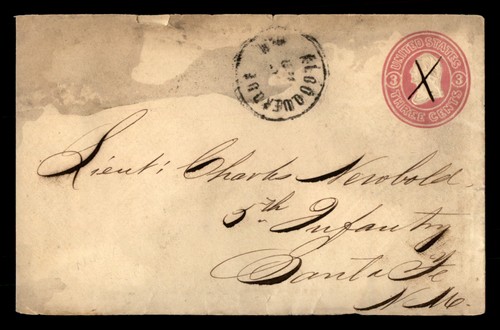 ALBUQUERQUE
UNITED STATES
3 3
THREE CENTS
Lieut: Charles Newbold.
5th Infantry
Santa Fe
N. M.